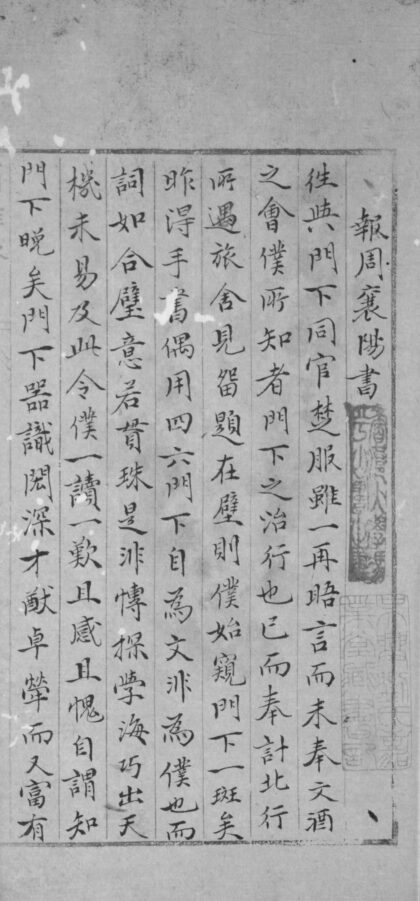 報周襄陽書
徃與門下同官楚服雖一再晤言而未奉文酒
之會僕所知者門下之治行也已而奉計北行
所遇旅舍見留題在壁則僕始窺門下一斑矣
昨得手書偶用四六門下自為文非為僕也而
詞如合璧意若貫珠是非博探學海巧出天
機未易及此令僕一讀一歎且感且愧自謂知
門下晚矣門下器識閎深才猷卓犖而又富有